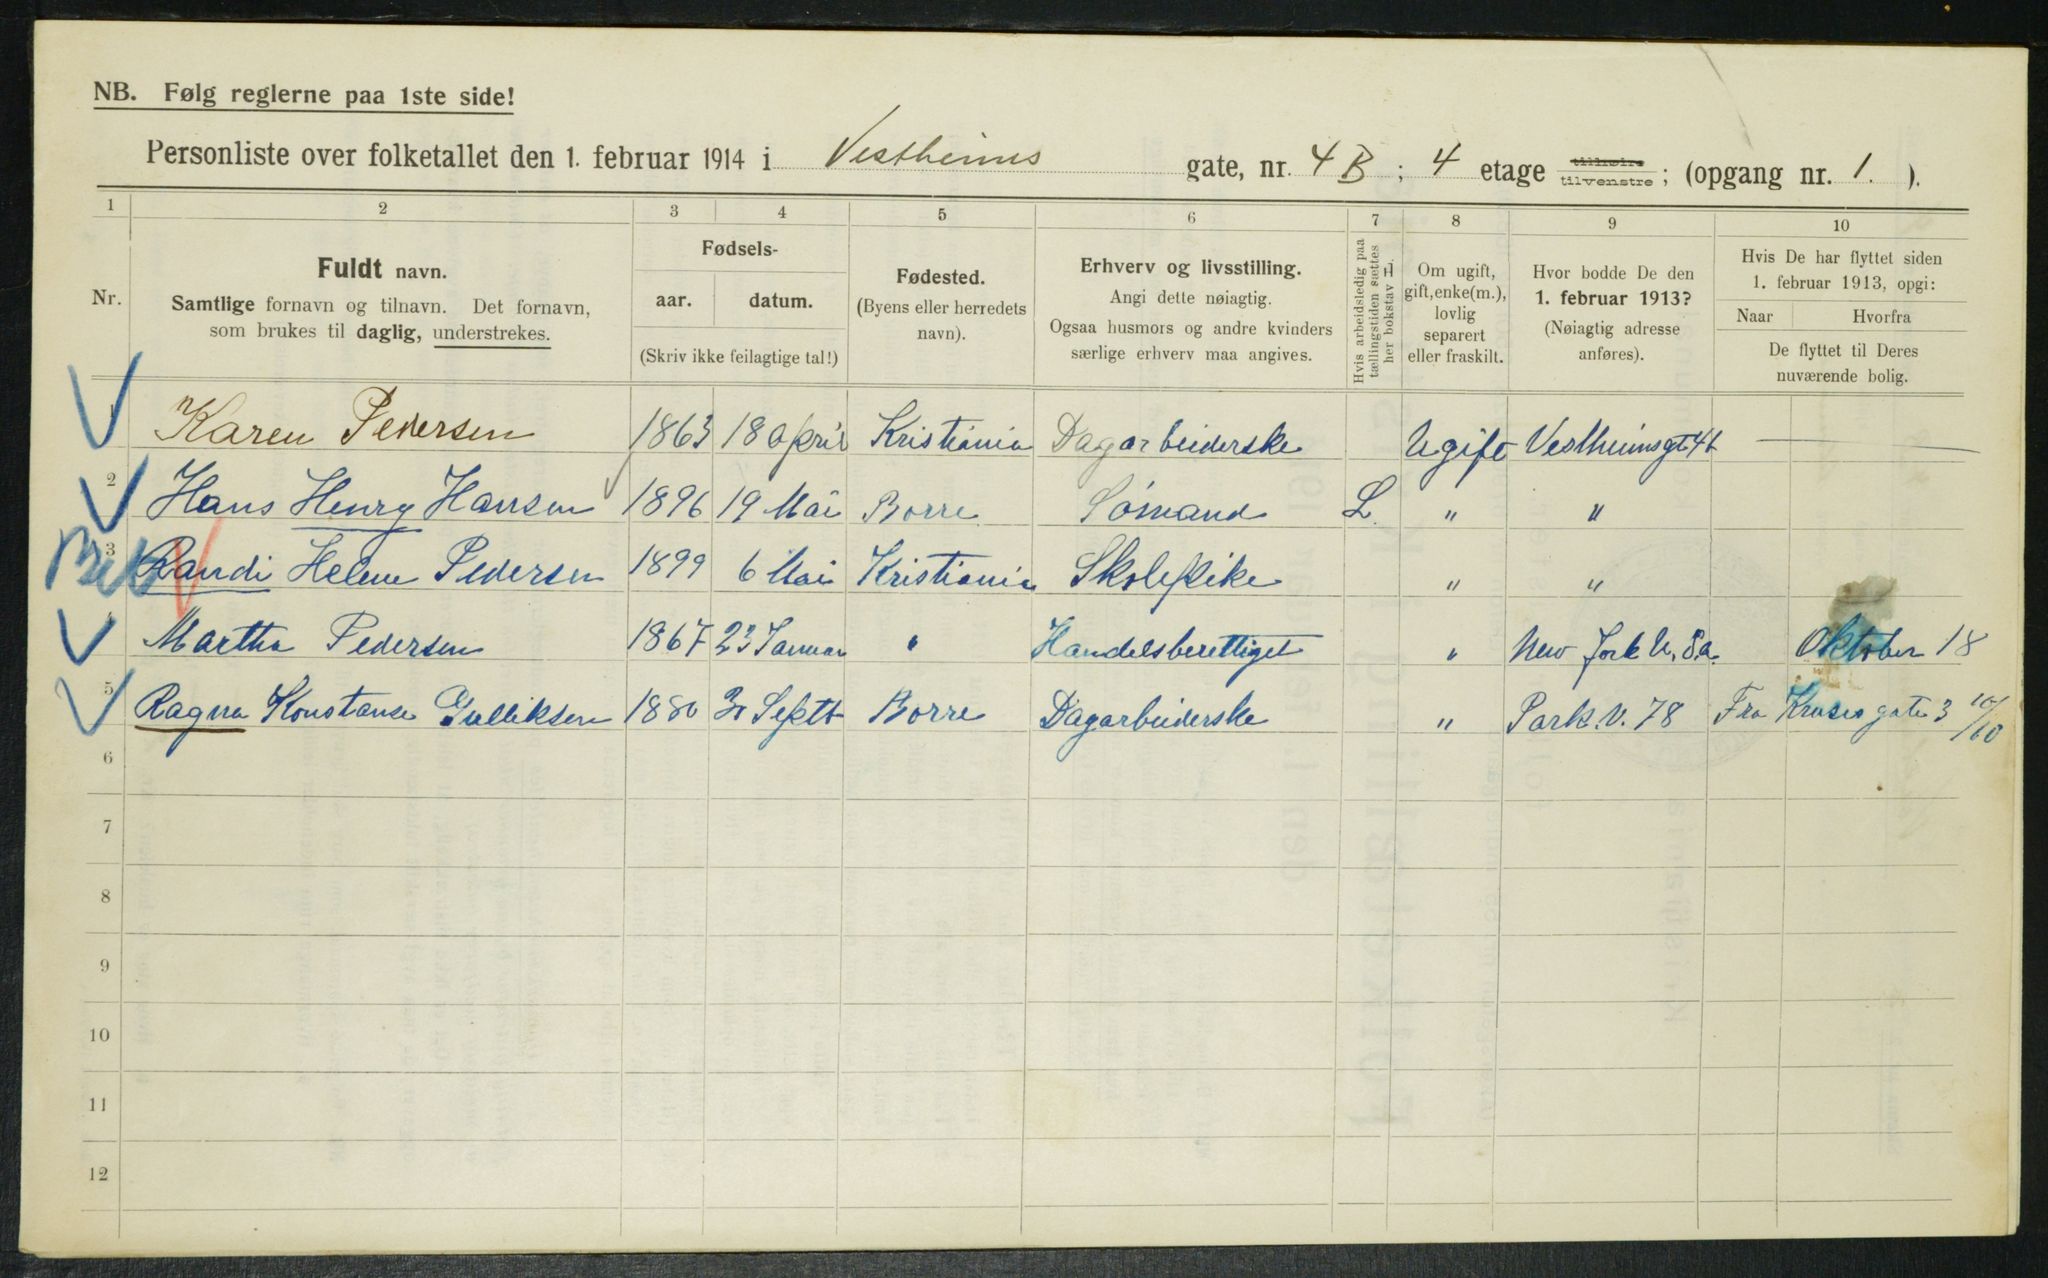 NB. Følg reglerne paa 1ste side!
Personliste over folketallet den 1. februar 1914 i Vestheims gate, nr. 4 B ; 4 etage tilhøire tilvenstre ; (opgang nr. 1. ).
1 2 3 4 5 6 7 8 9 10
Nr.
Fuldt navn.
Samtlige fornavn og tilnavn. Det fornavn,
som brukes til daglig, understrekes.
Fødsels-
aar. datum.
(Skriv ikke feilagtige tal!)
Fødested.
(Byens eller herredets
navn).
Erhverv og livsstilling.
Angi dette nøiagtig.
Ogsaa husmors og andre kvinders
særlige erhverv maa angives.
Hvis arbeidsledig paa
tællingstiden sættes
her bokstav L.
Om ugift,
gift, enke(m.),
lovlig
separert
eller fraskilt.
Hvor bodde De den
1. februar 1913?
(Nøiagtig adresse
anføres).
Hvis De har flyttet siden
1. februar 1913, opgi:
Naar Hvorfra
De flyttet til Deres
nuværende bolig.
1 Karen Pedersen 1863 18 april Kristiania Dagarbeiderske Ugift Vestheimsgt 4b
2 Hans Henry Hansen 1896 19 Mai Borre Sömand L " "
3 Randi Helene Pedersen 1899 6 Mai Kristiania Skolepike " "
4 Martha Pedersen 1867 23 Januar " Handelsberettiget " New York U. S. a. Oktober 18
5 Ragna Konstanse Gulliksen 1880 30 Septb Borre Dagarbeiderske " Park. V. 78 Fra Kruses gate 3 10/10
6
7
8
9
10
11
12